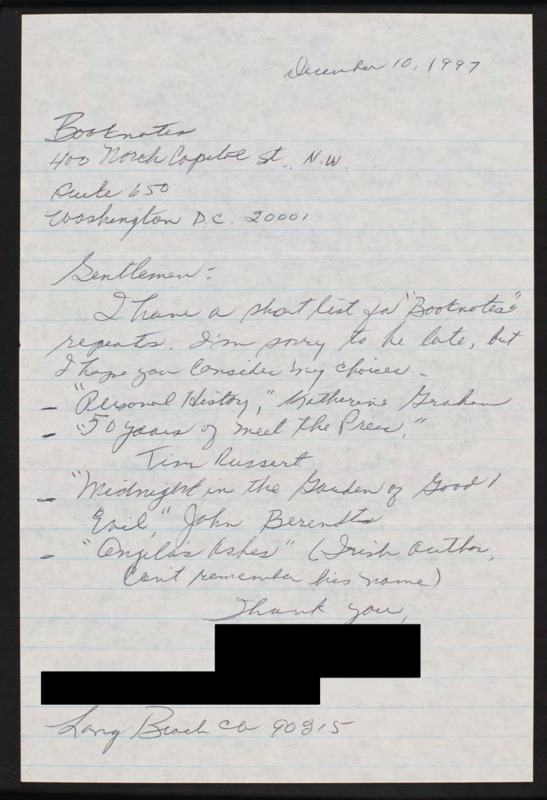 December 10, 1997
Booknotes
400 North Capitol St. N.W.
Suite 650
Washington D.C. 20001
Gentlemen:
I have a short list for "Booknotes"
repeats. I'm sorry to be late, but
I hope you consider my choices.
- "Personal History," Katherine Graham
- "50 years of Meet the Press,"
Tim Russert
- "Midnight in the Garden of Good &
Evil," John Berendts
- "Angelas Ashes" (Irish author,
can't remember his name)
Thank you,
Long Beach CA 90815